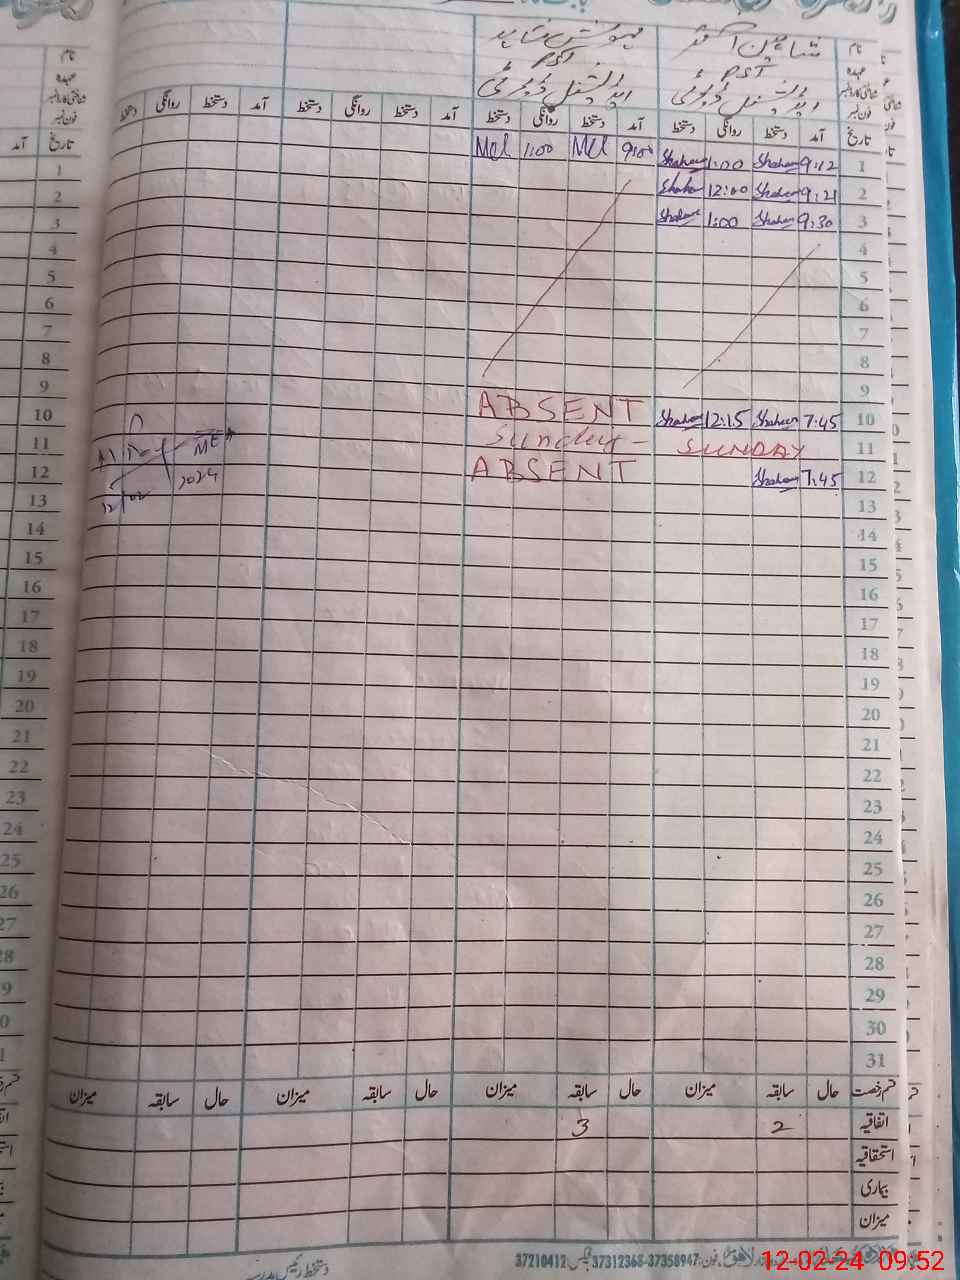 نام
عہدہ
شناختی کارڈ نمبر
فون نمبر
ایڈیشنل ڈیوٹی
ایڈیشنل ڈیوٹی
تاریخ آمد دستخط روانگی دستخط آمد دستخط روانگی دستخط آمد دستخط روانگی دستخط آمد دستخط روانگی دستخط
1 9:12 Shaheen 1:00 Shaheen 9:00 1:00
2 9:21 Shaheen 12:00 Shaheen
3 9:30 Shaheen 1:00 Shaheen
4
5
6
7
8
9
10 7:45 Shaheen 12:15 Shaheen ABSENT
11 SUNDAY Sunday
12 7:45 Shaheen ABSENT
12/02 2024
13
14
15
16
17
18
19
20
21
22
23
24
25
26
27
28
29
30
31
قسم رخصت حال سابقہ میزان حال سابقہ میزان حال سابقہ میزان حال سابقہ میزان
اتفاقیہ 2 3
استحقاقیہ
بیماری
میزان
فون: 37358947-37312368 فیکس: 37210412
12-02-24 09:52